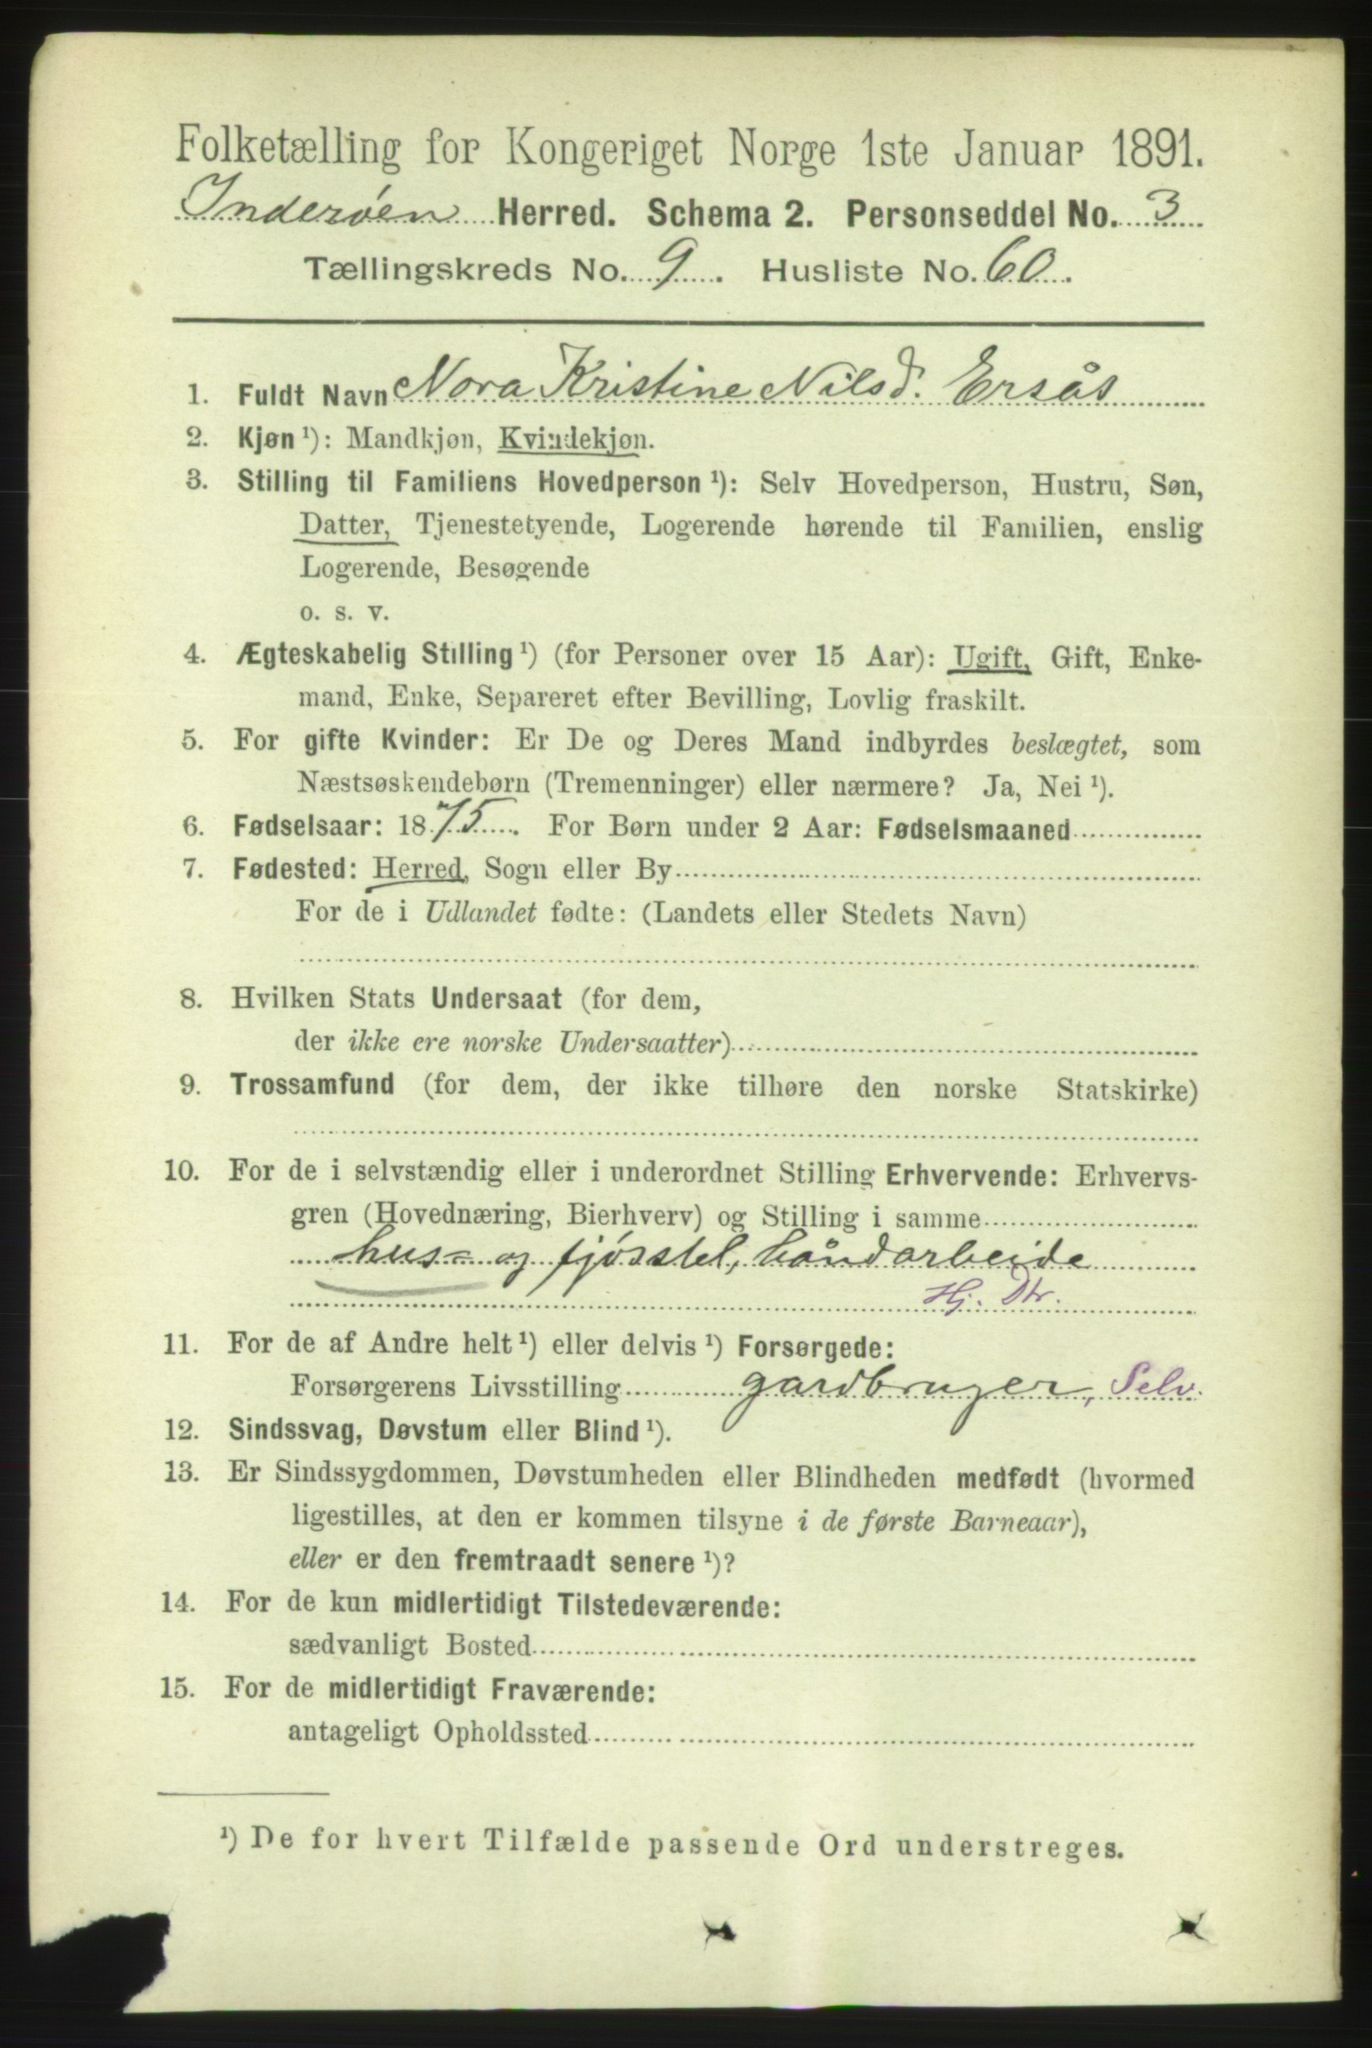 Folketælling for Kongeriget Norge 1ste Januar 1891.
Inderøen Herred. Schema 2. Personseddel No. 3
Tællingskreds No. 9. Husliste No. 60.
1. Fuldt Navn Nora Kristine Nilsd. Ersås
2. Kjøn ¹): Mandkjøn, Kvindekjøn.
3. Stilling til Familiens Hovedperson ¹): Selv Hovedperson, Hustru, Søn,
Datter, Tjenestetyende, Logerende hørende til Familien, enslig
Logerende, Besøgende
o. s. v.
4. Ægteskabelig Stilling ¹) (for Personer over 15 Aar): Ugift, Gift, Enke-
mand, Enke, Separeret efter Bevilling, Lovlig fraskilt.
5. For gifte Kvinder: Er De og Deres Mand indbyrdes beslægtet, som
Næstsøskendebørn (Tremenninger) eller nærmere? Ja, Nei ¹).
6. Fødselsaar: 1875. For Børn under 2 Aar: Fødselsmaaned
7. Fødested: Herred, Sogn eller By
For de i Udlandet fødte: (Landets eller Stedets Navn)
8. Hvilken Stats Undersaat (for dem,
der ikke ere norske Undersaatter)
9. Trossamfund (for dem, der ikke tilhøre den norske Statskirke)
10. For de i selvstændig eller i underordnet Stilling Erhvervende: Erhvervs-
gren (Hovednæring, Bierhverv) og Stilling i samme
hus- og fjøsstel, håndarbeide
Hj. Dtr.
11. For de af Andre helt ¹) eller delvis ¹) Forsørgede:
Forsørgerens Livsstilling gardbruger, Selv.
12. Sindssvag, Døvstum eller Blind ¹).
13. Er Sindssygdommen, Døvstumheden eller Blindheden medfødt (hvormed
ligestilles, at den er kommen tilsyne i de første Barneaar),
eller er den fremtraadt senere ¹)?
14. For de kun midlertidigt Tilstedeværende:
sædvanligt Bosted
15. For de midlertidigt Fraværende:
antageligt Opholdssted
¹) De for hvert Tilfælde passende Ord understreges.